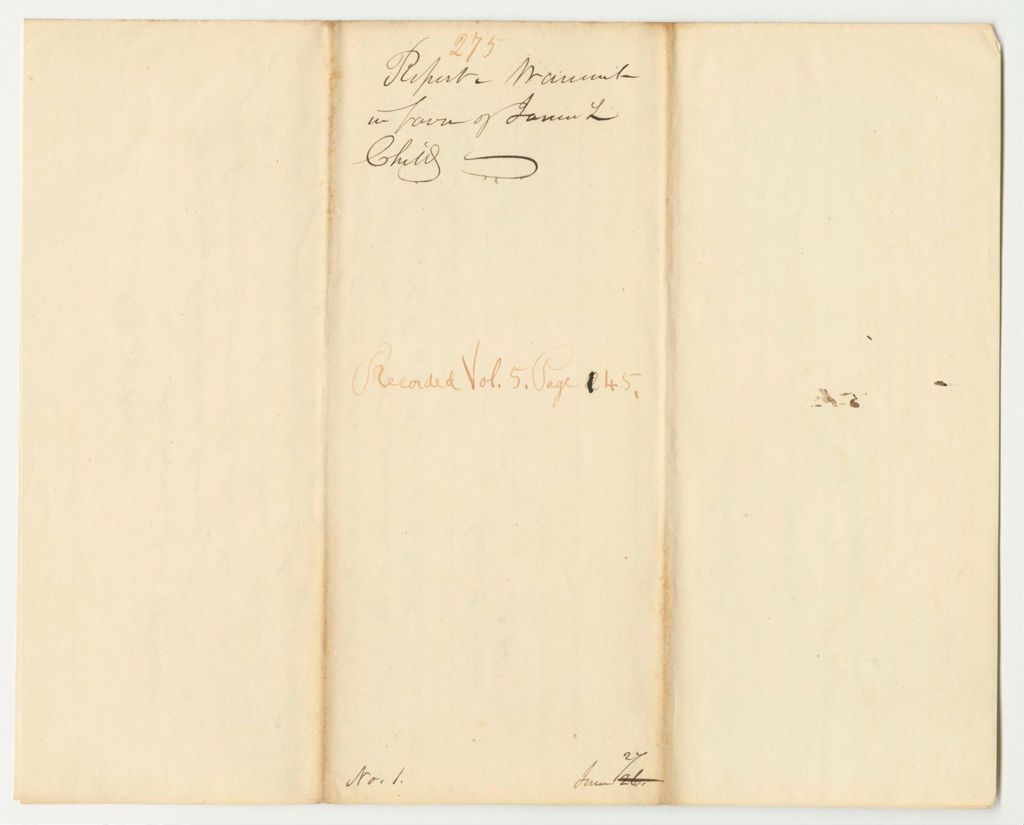 275
Report - Warrant
in favor of James L
Child
Recorded Vol. 5. Page 145.
No. 1. June 27